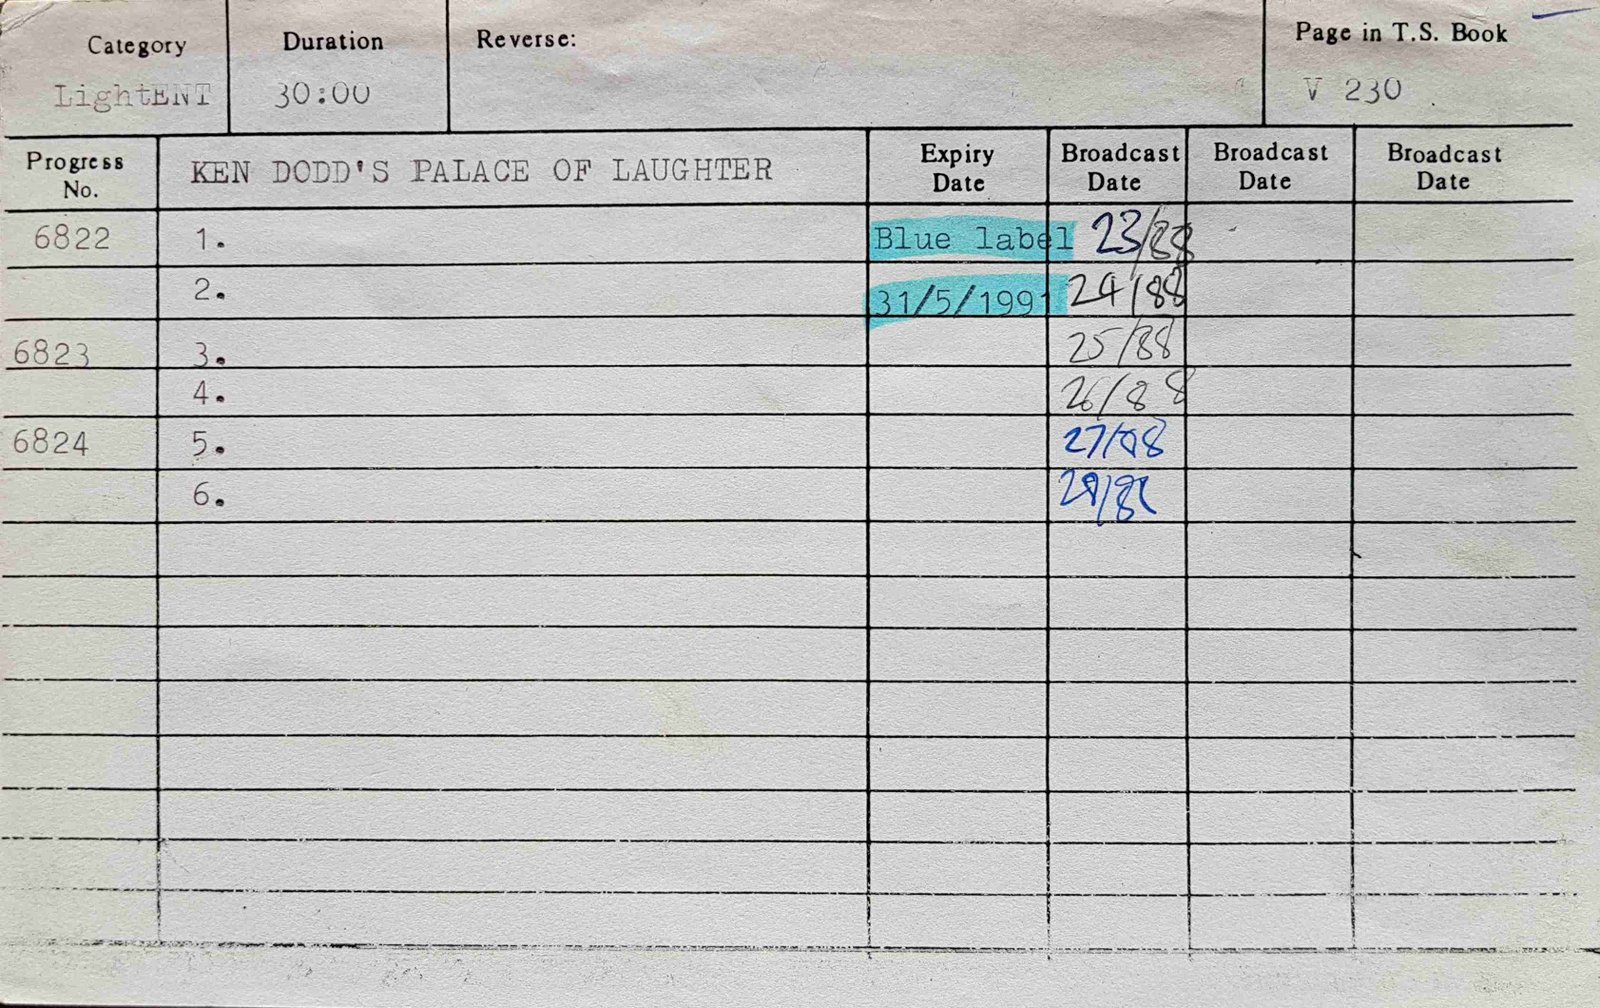 Category Duration Reverse: Page in T.S. Book
LightENT 30:00 V 230
Progress No. KEN DODD'S PALACE OF LAUGHTER Expiry Date Broadcast Date Broadcast Date Broadcast Date
6822 1. Blue label 23/88
2. 31/5/1991 24/88
6823 3. 25/88
4. 26/88
6824 5. 27/88
6.